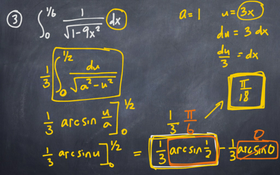 ③ ∫₀^{1/6} 1/√(1-9x²) dx
a = 1 u = 3x
du = 3 dx
du/3 = dx
1/3 ∫₀^{1/2} du/√(a²-u²)
1/3 arcsin u/a ]₀^{1/2}
π/18
1/3 · π/6
0
1/3 arcsin u ]₀^{1/2} = 1/3 arcsin 1/2 - 1/3 arcsin 0